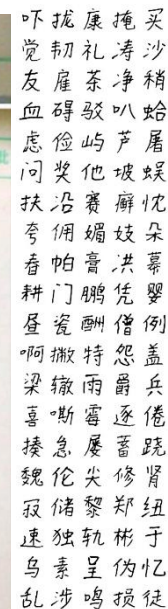 吓拢康掩买
觉韧礼涛沙
友雇茶净稍
血碍驳叭蛤
虑俭屿芦屠
问奖他坡蜈
扶沿赛癣忱
夸佣媚妓朵
春帕膏洪慕
耕门鹏凭婴
昼瓷酬僧例
啊撒特怨盖
梁辙雨爵兵
喜嘶霉逐倦
揍急屡蓄跷
魏伦尖修肾
寂储黎郑纽
速独轨彬于
乌素呈伪忆
乱涉鸣损徒